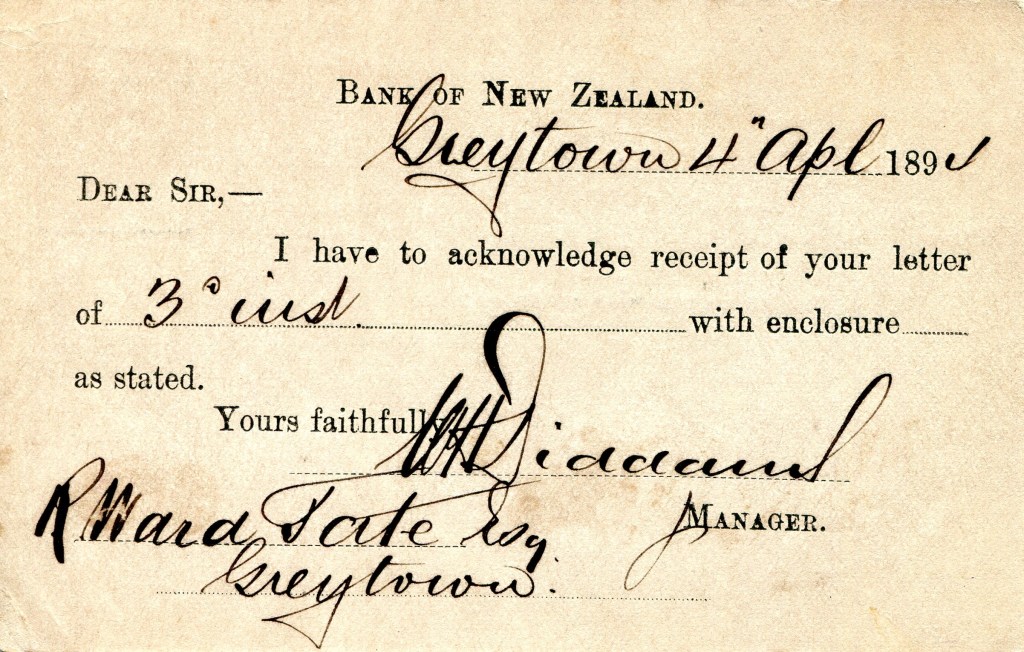 BANK OF NEW ZEALAND.
Greytown 4" Apl 1894
DEAR SIR,—
I have to acknowledge receipt of your letter
of 3° inst. with enclosure
as stated.
Yours faithfully
WH Diddams
MANAGER.
R Ward Tate Esq.
Greytown.